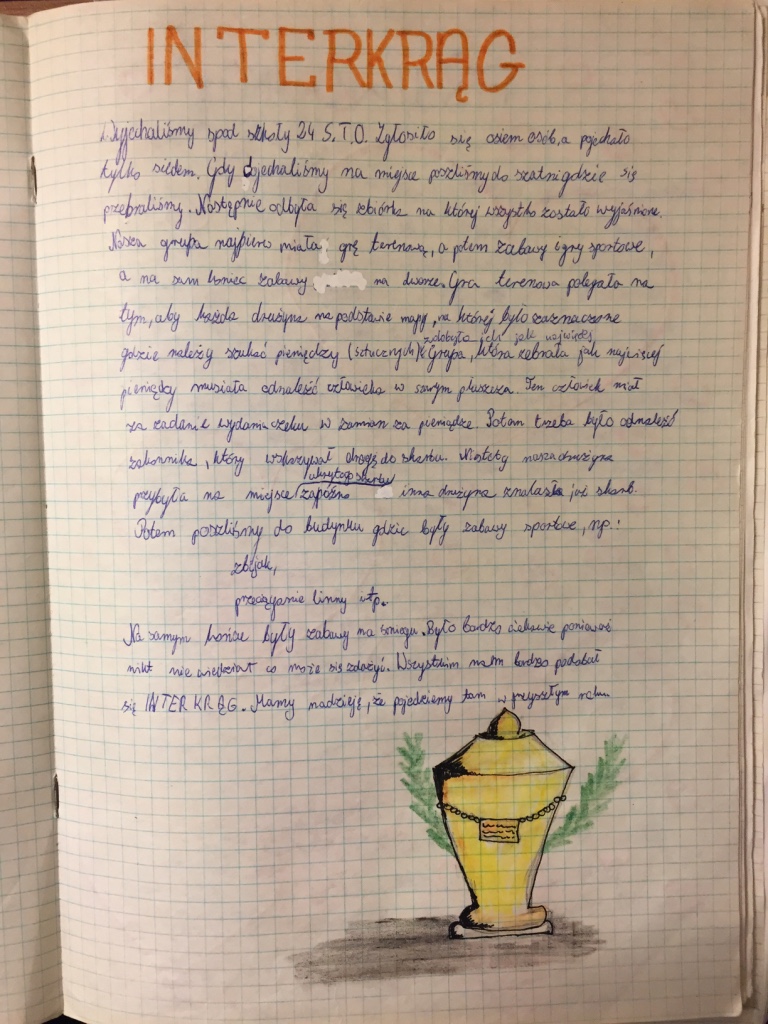 INTERKRĄG
Wyjechaliśmy spod szkoły 24 S.T.O. Zgłosiło się osiem osób, a pojechało
tylko siedem. Gdy dojechaliśmy na miejsce poszliśmy do szatni gdzie się
przebraliśmy. Następnie odbyła się zbiórka na której wszystko zostało wyjaśnione.
Nasza grupa najpierw miała grę terenową, a potem zabawy i gry sportowe,
a na sam koniec zabawy na dworze. Gra terenowa polegała na
tym, aby każda drużyna na podstawie mapy, na której było zaznaczone
zdobyła ich jak najwięcej
gdzie należy szukać pieniędzy (sztucznych) Grupa, która zebrała jak najwięcej
pieniędzy musiała odnaleść człowieka w szarym płaszczu. Ten człowiek miał
za zadanie wydanie czeku w zamian za pieniądze. Potem trzeba było odnaleść
zakonnika, który wskazywał drogę do skarbu. Niestety nasza drużyna
ukrytego skarbu
przybyła na miejsce zapóźno inna drużyna znalazła już skarb.
Potem poszliśmy do budynku gdzie były zabawy sportowe, np.:
zbijak,
przeciąganie linny itp.
Na samym końcu były zabawy na śniegu. Było bardzo ciekawie ponieważ
nikt nie wiedział co może się zdażyć. Wszystkim nam bardzo podobał
się INTERKRĄG. Mamy nadzieję, że pojedziemy tam w przyszłym roku